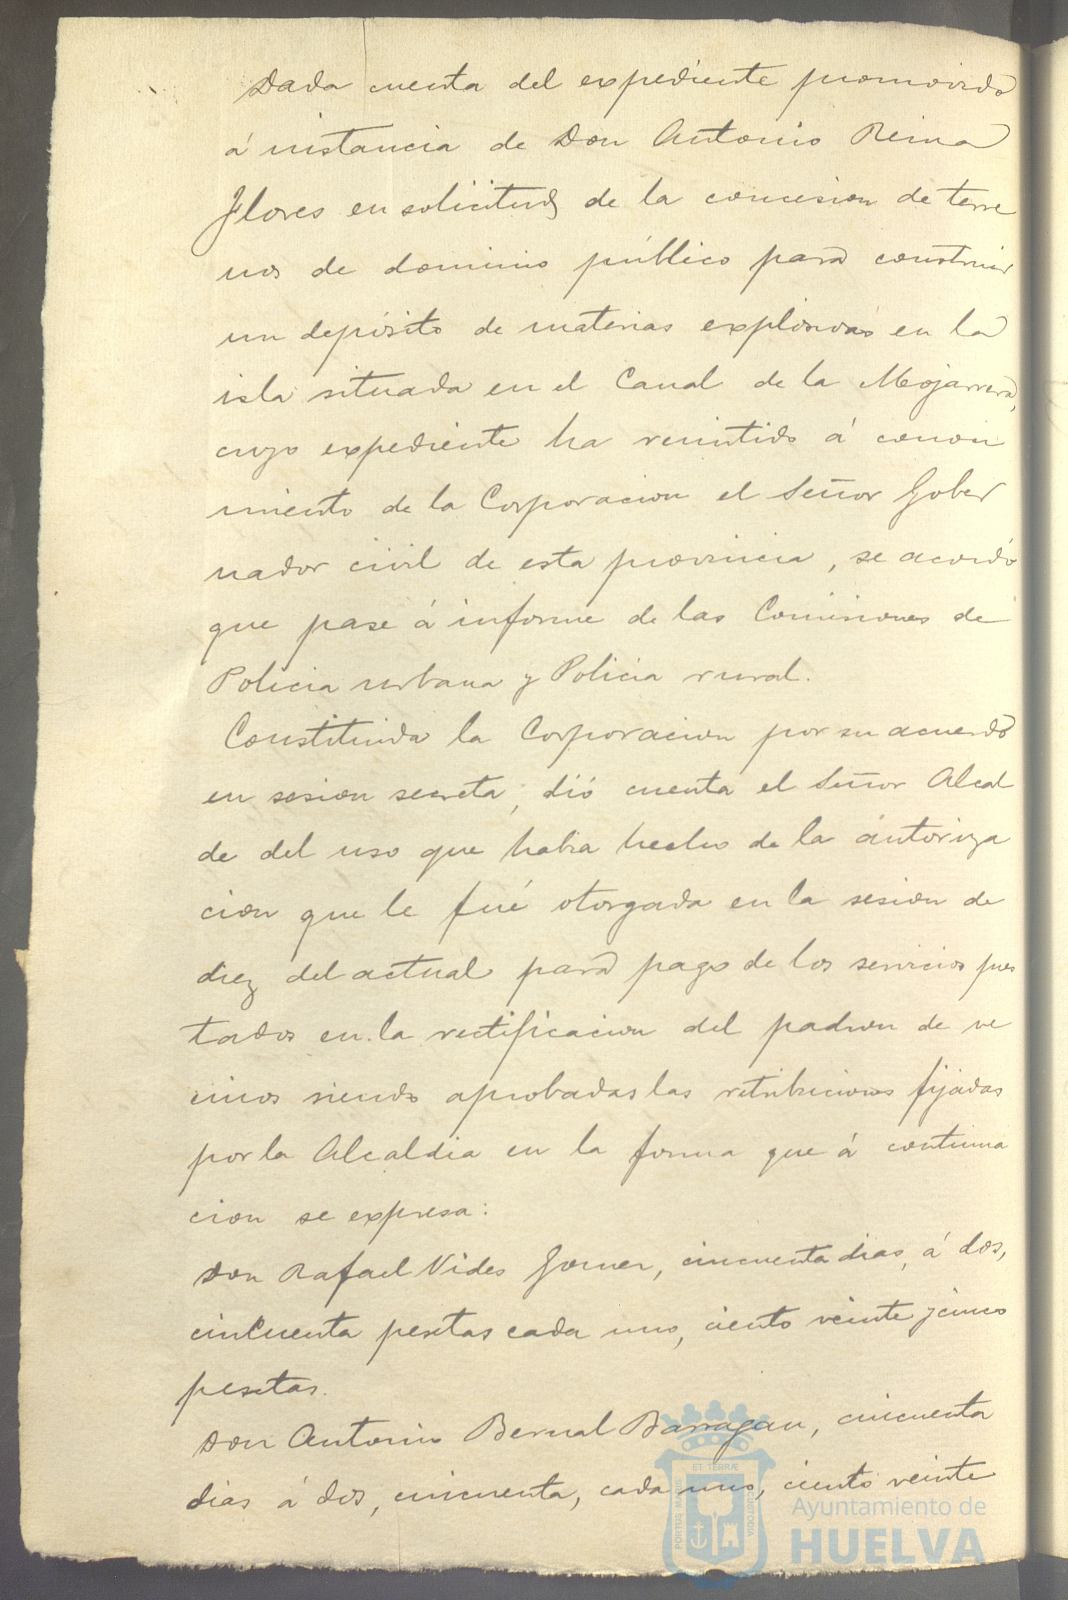 Dada cuenta del expediente promovido
á instancia de Don Antonio Reina
Flores en solicitud de la concesion de terre
nos de dominio público para construir
un depósito de materias explosivas en la
isla situada en el Canal de la Mojarrera,
cuyo expediente ha remitido á conoci
miento de la Corporacion el Señor Gober
nador civil de esta provincia, se acordó
que pase á informe de las Comisiones de
Policia urbana y Policia rural.
Constituida la Corporacion por su acuerdo
en sesion secreta, dió cuenta el Señor Alcal
de del uso que habia hecho de la autoriza
cion que le fué otorgada en la sesion de
diez del actual para pago de los servicios pres
tados en la rectificacion del padron de ve
cinos siendo aprobadas las retribuciones fijadas
por la Alcaldia en la forma que á continua
cion se expresa:
Don Rafael Vides Gomer, cincuenta dias, á dos,
cincuenta pesetas cada uno, ciento veinte y cinco
pesetas.
Don Antonio Bernal Barragan, cincuenta
dias á dos, cincuenta, cada uno, ciento veinte
PORTUS MARIS ET TERRÆ CUSTODIA
Ayuntamiento de
HUELVA